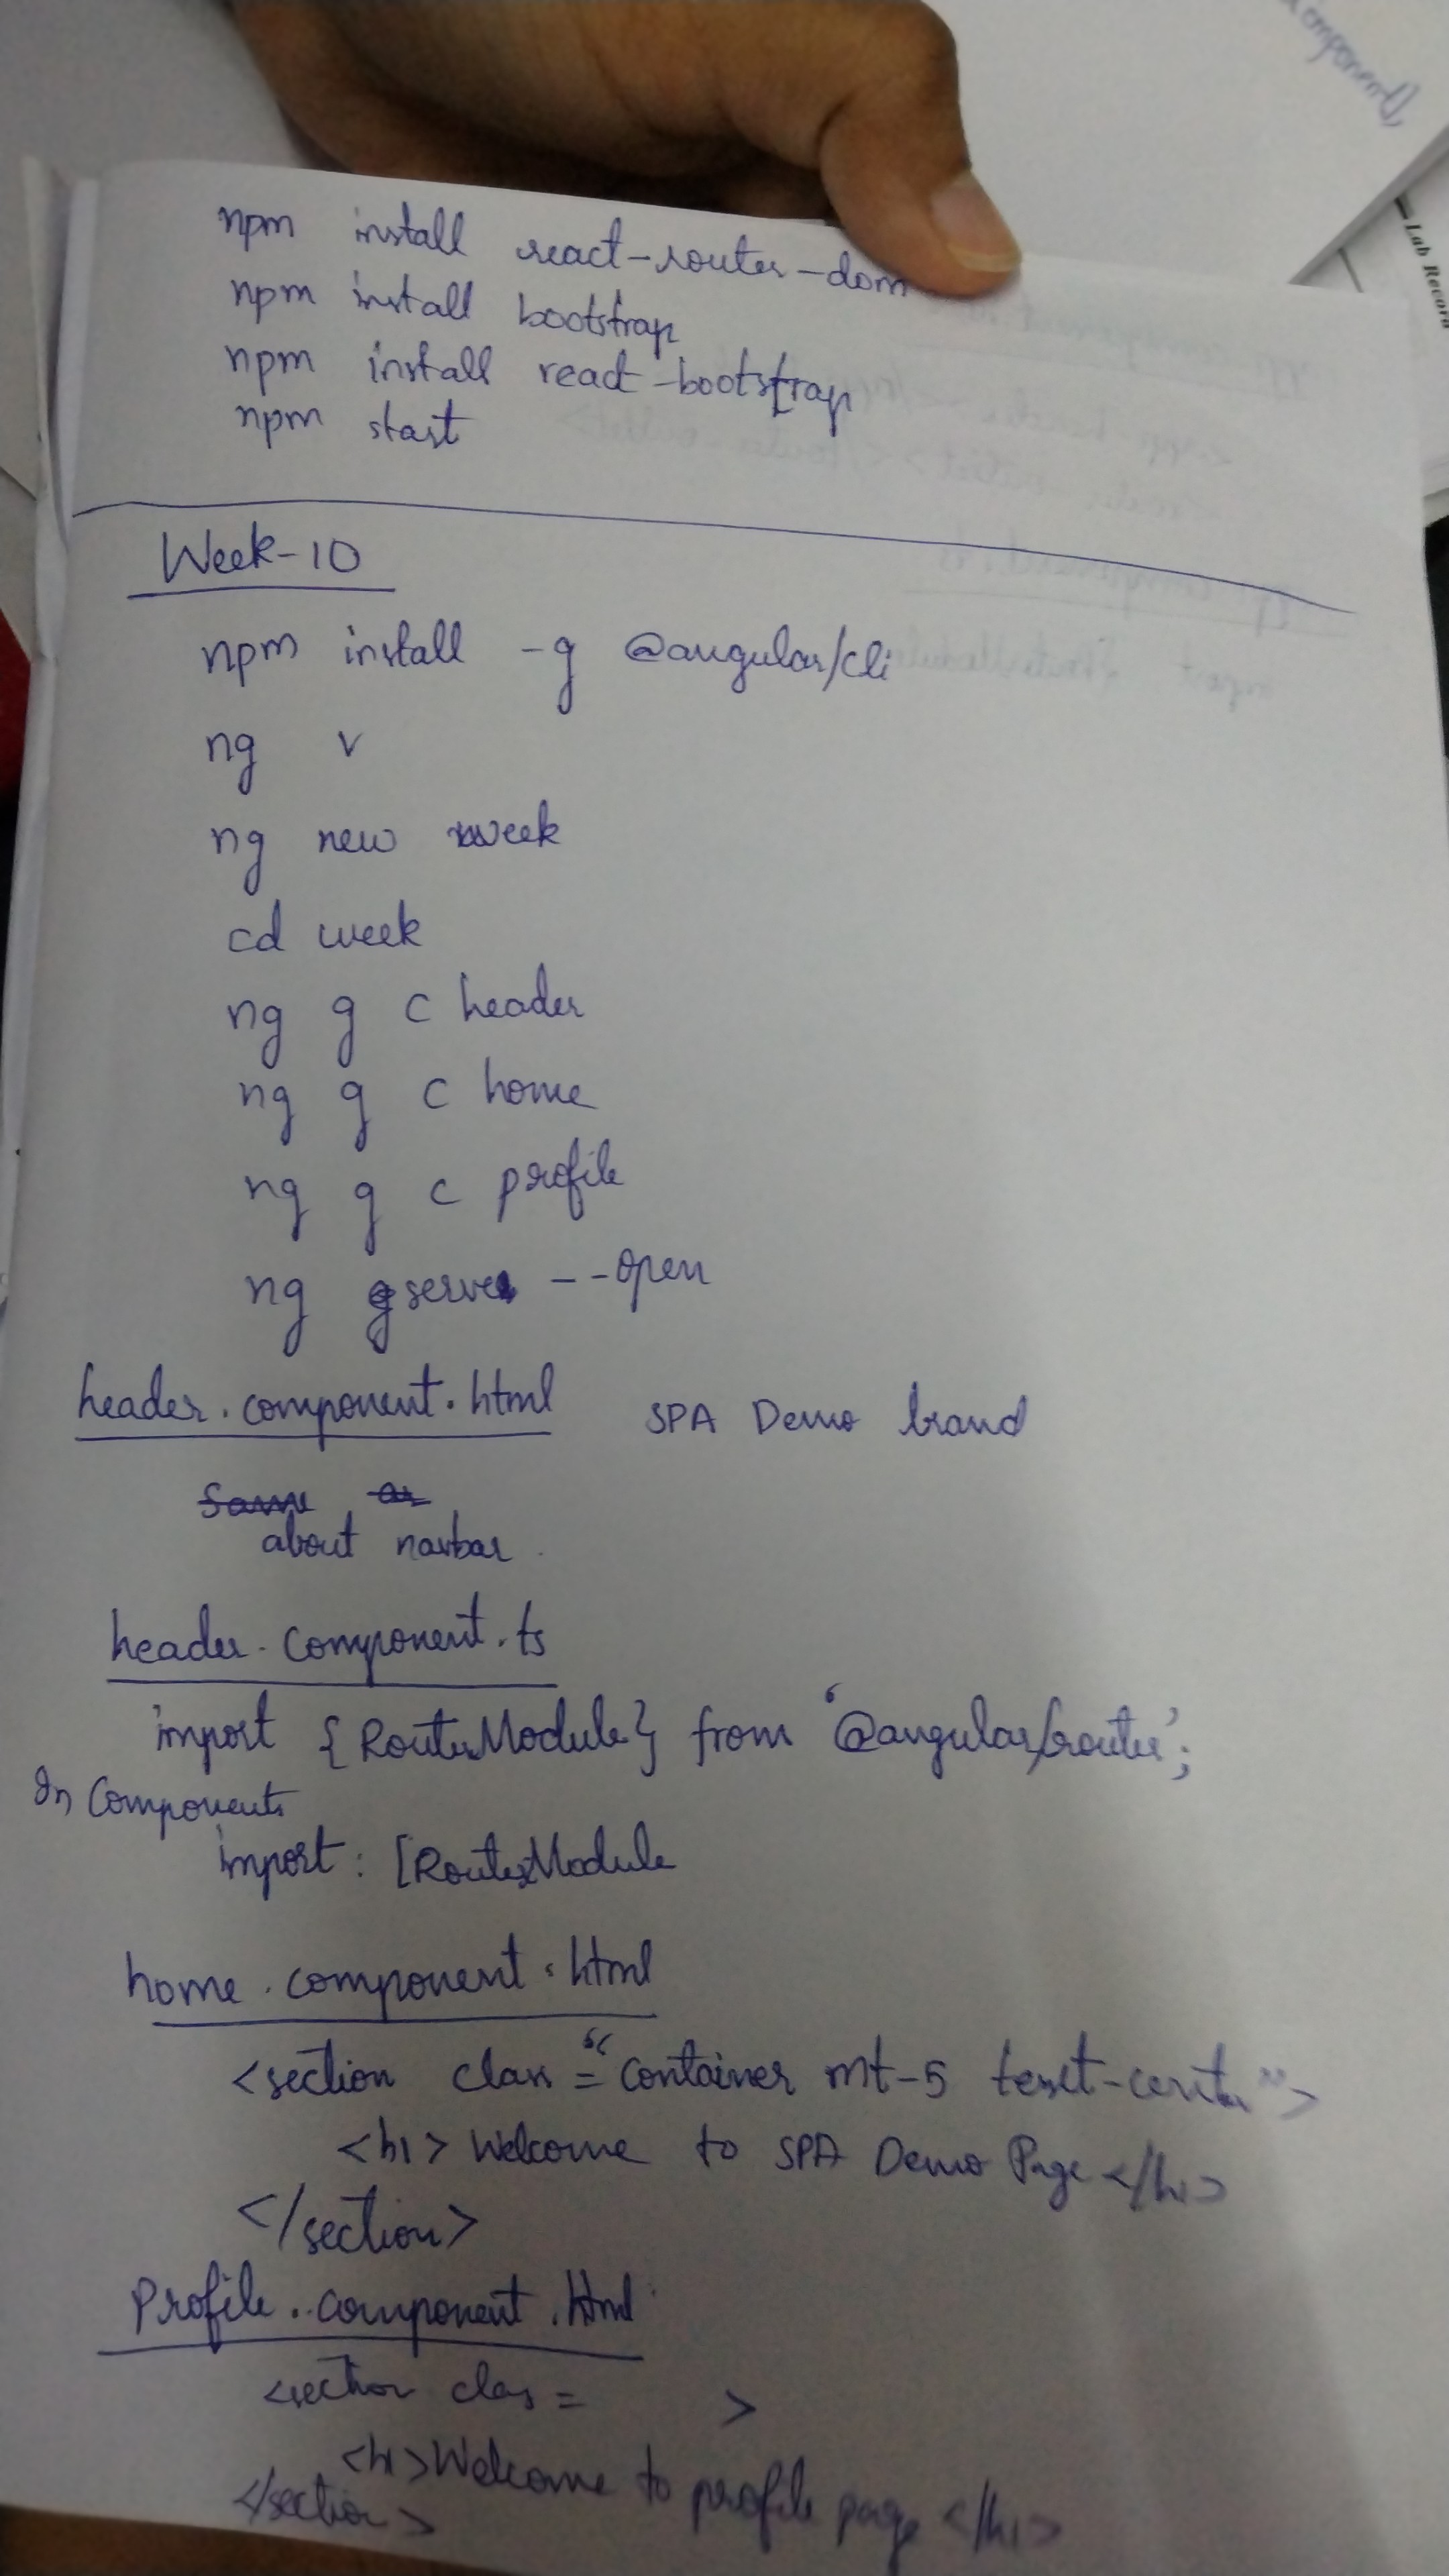 omponent),
Lab Record
npm install react-router-dom
npm install bootstrap
npm install react-bootstrap
npm start
Week-10
npm install -g @angular/cli
ng v
ng new week
cd week
ng g c header
ng g c home
ng g c profile
ng serve --open
header.component.html SPA Demo brand
Same as
about navbar
header.component.ts
import {RouterModule} from '@angular/router';
In Components
import: [RouterModule
home.component.html
<section class="container mt-5 text-center">
<h1> Welcome to SPA Demo Page </h1>
</section>
Profile.component.html
<section class= >
<h1>Welcome to profile page </h1>
</section>